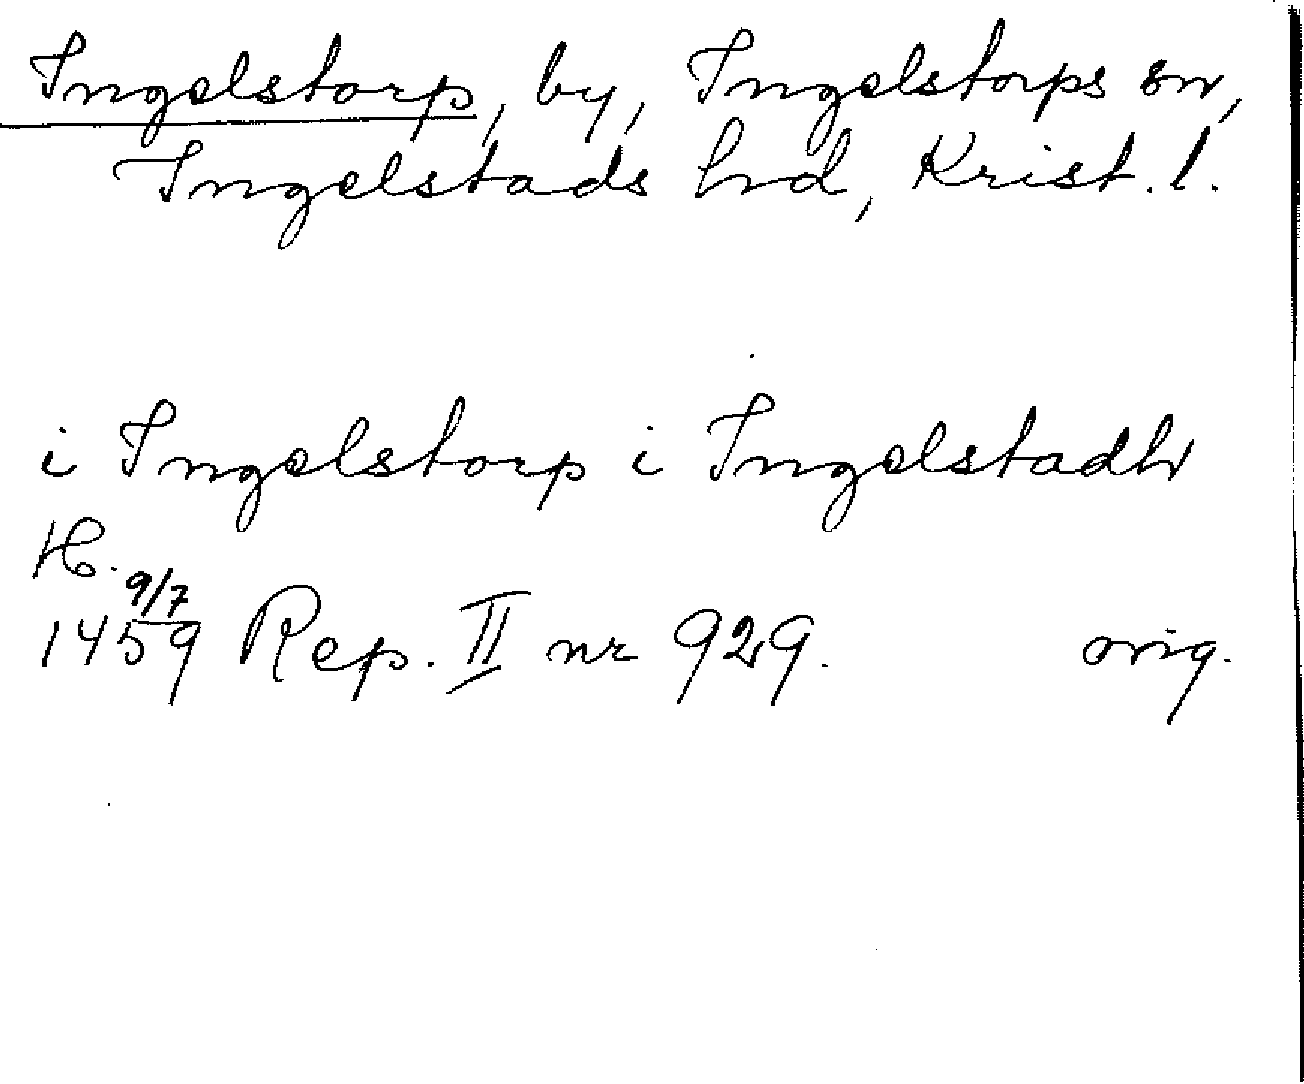 Ingelstorp, by, Ingelstorps sn,
Ingelstads hrd, Krist. l.
i Ingelstorp i Ingelstadh
H.
9/7
1459 Rep. II nr 929. orig.